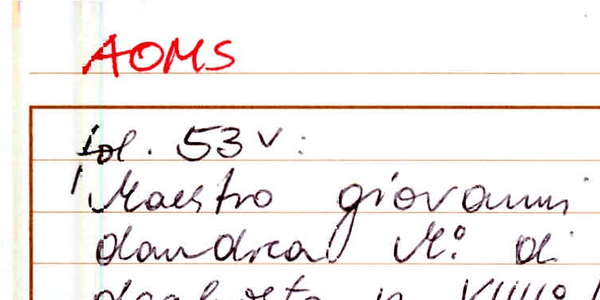 AOMS
fol. 53v:
Maestro giovanni
dandrea M.º di